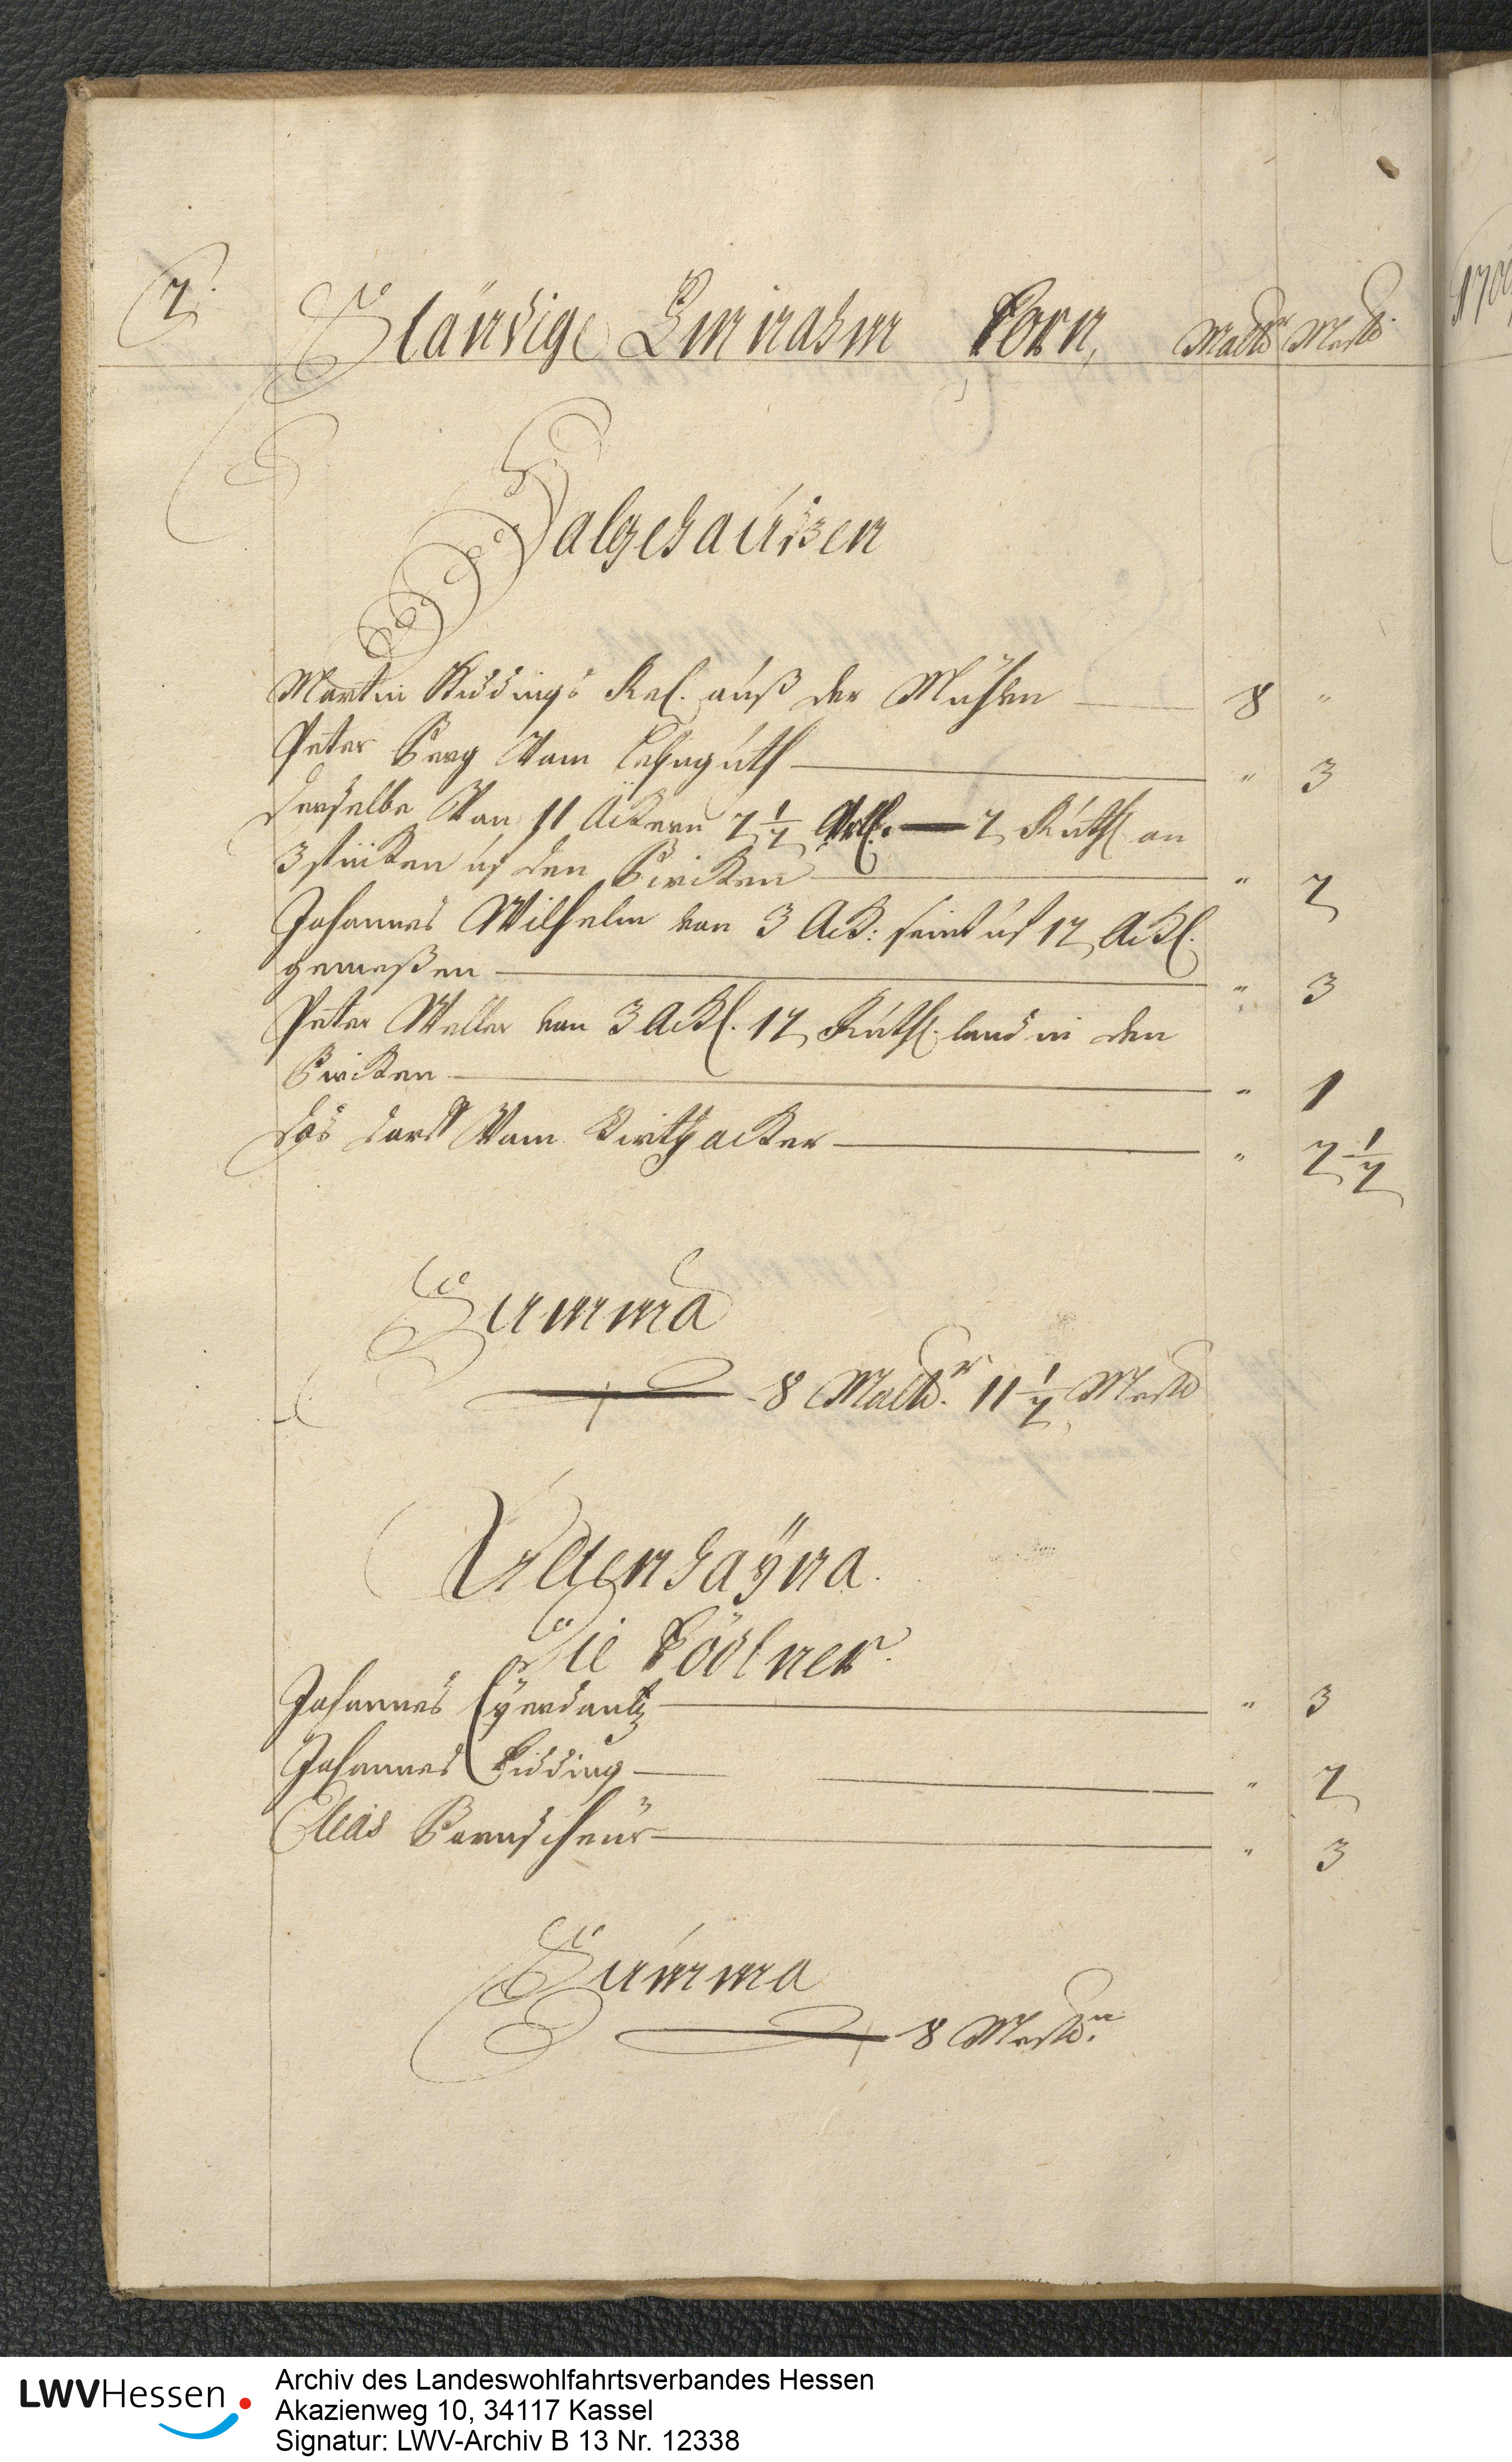 2.
Ständige Einnahm Korn, Maltr Mestr
Halgehaußen
Martin Riddings Rel. auß der Mühlen 8 "
Peter Berg Vom Lehnguth " 3
derselbe Von 11 Ackern 2 1/2 2 Ruth an
3 stücken uf den Bircken " 2
Johannes Wilhelm von 3 Ack: seind uf 12 Ackl.
gemeßen " 3
Peter Weller von 3 Ackl. 12 Ruth. land in den
Bircken " 1
das dorff Vom acker " 2 1/2
Summa
8 Maltr. 11 1/2 Mest
Altenhayna.
Die Ködlner.
Johannes Eyerdantz " 3
Johannes Ridding " 2
Elias Bornscheür " 3
Summa
8 Mestn.
170
LWVHessen
Archiv des Landeswohlfahrtsverbandes Hessen
Akazienweg 10, 34117 Kassel
Signatur: LWV-Archiv B 13 Nr. 12338